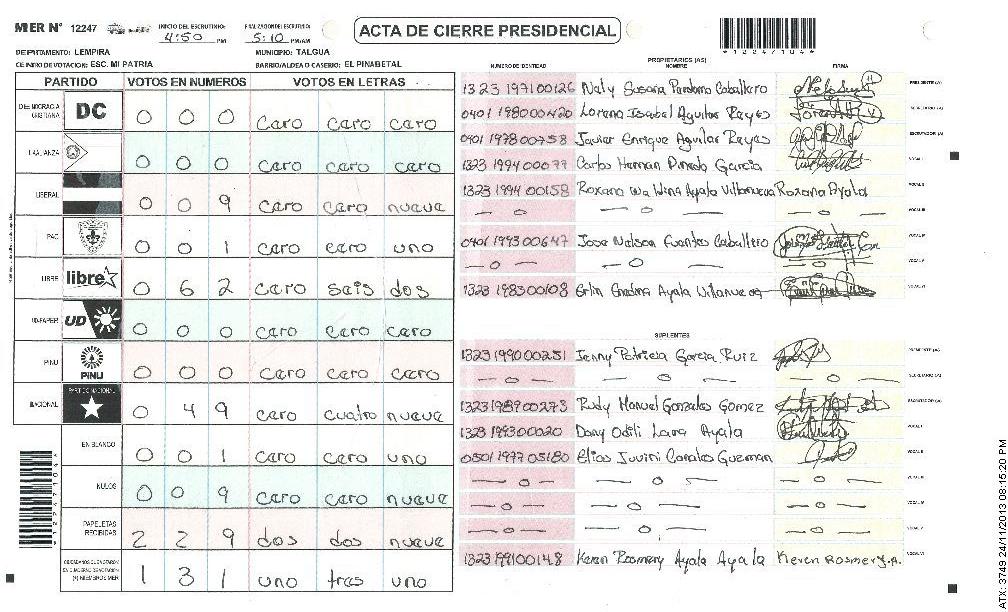 MER N° 12247 INICIO DEL ESCRUTINIO: 4:50 PM FINALIZACION DEL ESCRUTINIO: 5:10 PM/AM
ACTA DE CIERRE PRESIDENCIAL
DEPARTAMENTO: LEMPIRA MUNICIPIO: TALGUA
CENTRO DE VOTACION: ESC. MI PATRIA BARRIO/ALDEA O CASERIO: EL PINABETAL
PARTIDO VOTOS EN NUMEROS VOTOS EN LETRAS
DEMOCRACIA CRISTIANA DC 0 0 0 caro caro caro
ALIANZA 0 0 0 caro caro caro
LIBERAL 0 0 9 caro caro nueve
PAC 0 0 1 caro caro uno
LIBRE libre 0 6 2 caro seis dos
UD-FAPER UD 0 0 0 caro caro caro
PINU PINU 0 0 0 caro caro caro
NACIONAL PARTIDO NACIONAL 0 4 9 caro cuatro nueve
EN BLANCO 0 0 1 caro caro uno
NULOS 0 0 9 caro caro nueve
PAPELETAS RECIBIDAS 2 2 9 dos dos nueve
1 3 1 uno tres uno
PROPIETARIOS (AS)
NUMERO DE IDENTIDAD NOMBRE FIRMA
1323 1971 00126 Naly Susana Perdomo Caballero PRESIDENTE (A)
0401 1980 00420 Lorena Isabal Aguilar Reyes SECRETARIO (A)
0401 1978 00758 Javier Enrique Aguilar Reyes ESCRUTADOR (A)
1323 1994 00077 Carlos Hernan Pineda Garcia VOCAL I
1323 1994 00158 Roxana Ayala VOCAL II
— 0 — — 0 — — 0 — VOCAL III
0401 1993 00647 Jose Nelson Fuentes Caballero
— 0 — — 0 — — 0 —
1323 1983 00108 Ayala Villanueva
SUPLENTES
1323 1990 00251 Jenny Patricia Garcia Ruiz PRESIDENTE (A)
— 0 — — 0 — — 0 — SECRETARIO (A)
1323 1989 00273 Rudy Manuel Gonzales Gomez ESCRUTADOR (A)
1323 1993 00020 Dony Odili Lara Ayala VOCAL I
0501 1977 05180 Elias Juvini Corrales Guzman VOCAL II
— 0 — — 0 — — 0 — VOCAL III
— 0 — — 0 — — 0 —
— 0 — — 0 — — 0 —
1323 1991 00148 Keren Rosmery Ayala Ayala Keren Rosmery.A. VOCAL VI
ATX: 3749 24/11/2013 08:15:20 PM